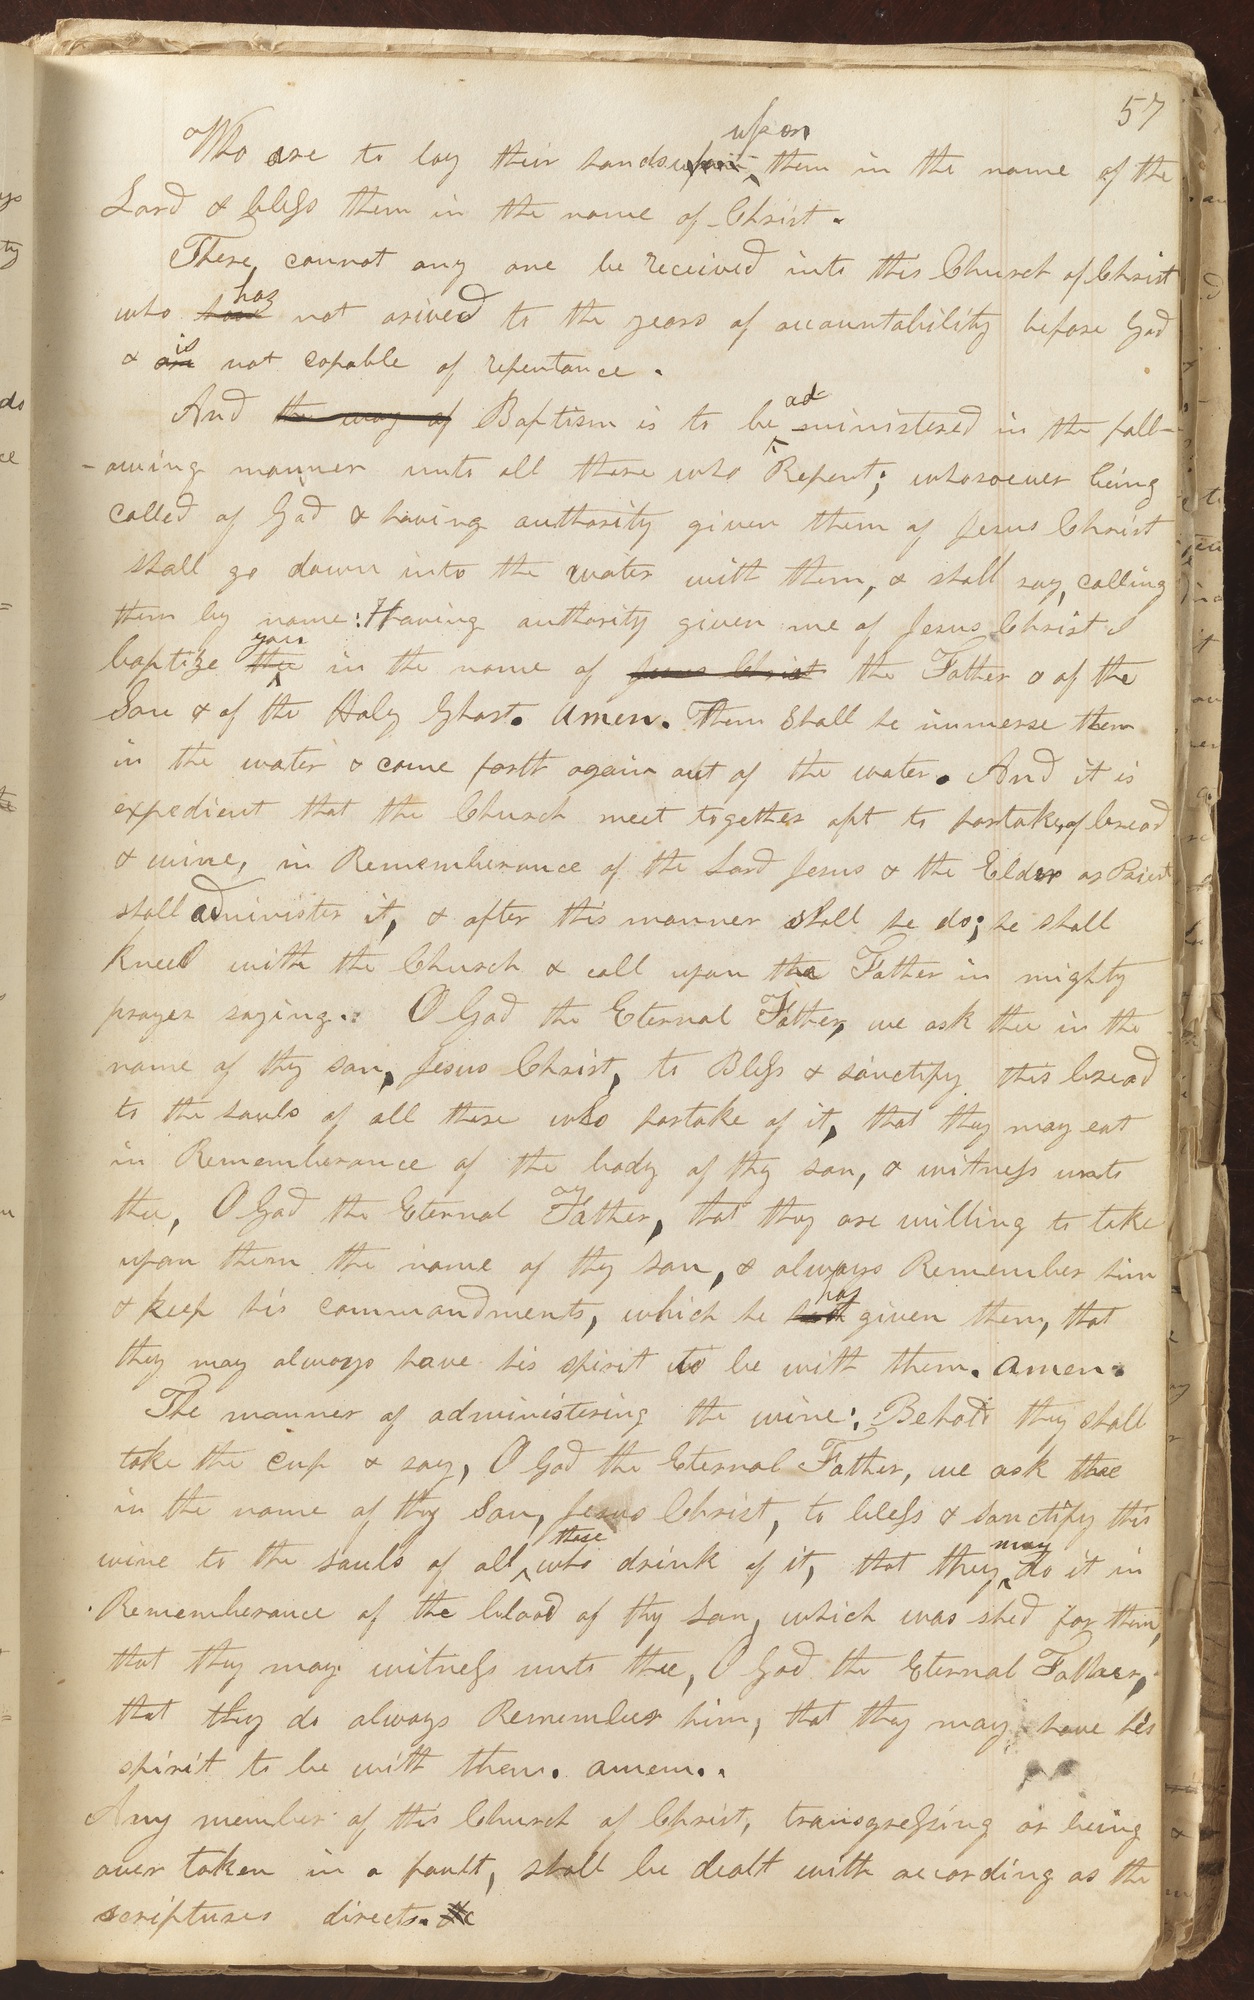 57
Who are to lay their hands upon them in the name of the
Lord & bless them in the name of Christ.
There cannot any one be received into this Church of Christ
who has not arived to the years of accountability before God
& is not capable of repentance.
And the way of Baptism is to be administered in the foll-
-owing manner unto all those who Repent; whosoever being
called of God & having authority given them of Jesus Christ
shall go down into the water with them, & shall say, calling
them by name: Having authority given me of Jesus Christ I
baptize you in the name of Jesus Christ the Father & of the
Son & of the Holy Ghost. Amen. Then shall he immerse them
in the water & come forth again out of the water. And it is
expedient that the Church meet together oft to partake of bread
& wine, in Rememberance of the Lord Jesus & the Elder or Priest
shall administer it, & after this manner shall he do; he shall
kneel with the Church & call upon the Father in mighty
prayer saying:. O God the Eternal Father, we ask thee in the
name of thy son, Jesus Christ, to Bless & sanctify this bread
to the souls of all those who partake of it, that they may eat
in Rememberance of the body of thy son, & witness unto
thee, O God the Eternal Father, that they are willing to take
upon them the name of thy son, & always Remember him
& keep his commandments, which he has given them, that
they may always have his spirit to be with them. Amen.
The manner of administering the wine: Behold they shall
take the cup & say, O God the Eternal Father, we ask thee
in the name of thy Son, Jesus Christ, to bless & sanctify this
wine to the souls of all those who drink of it, that they may do it in
Rememberance of the blood of thy son, which was shed for them,
that they may witness unto thee, O God the Eternal Father,
that they do always Remember him, that they may have his
spirit to be with them. amen..
Any member of this Church of Christ, transgressing or being
over taken in a fault, shall be dealt with according as the
scriptures directs. &c